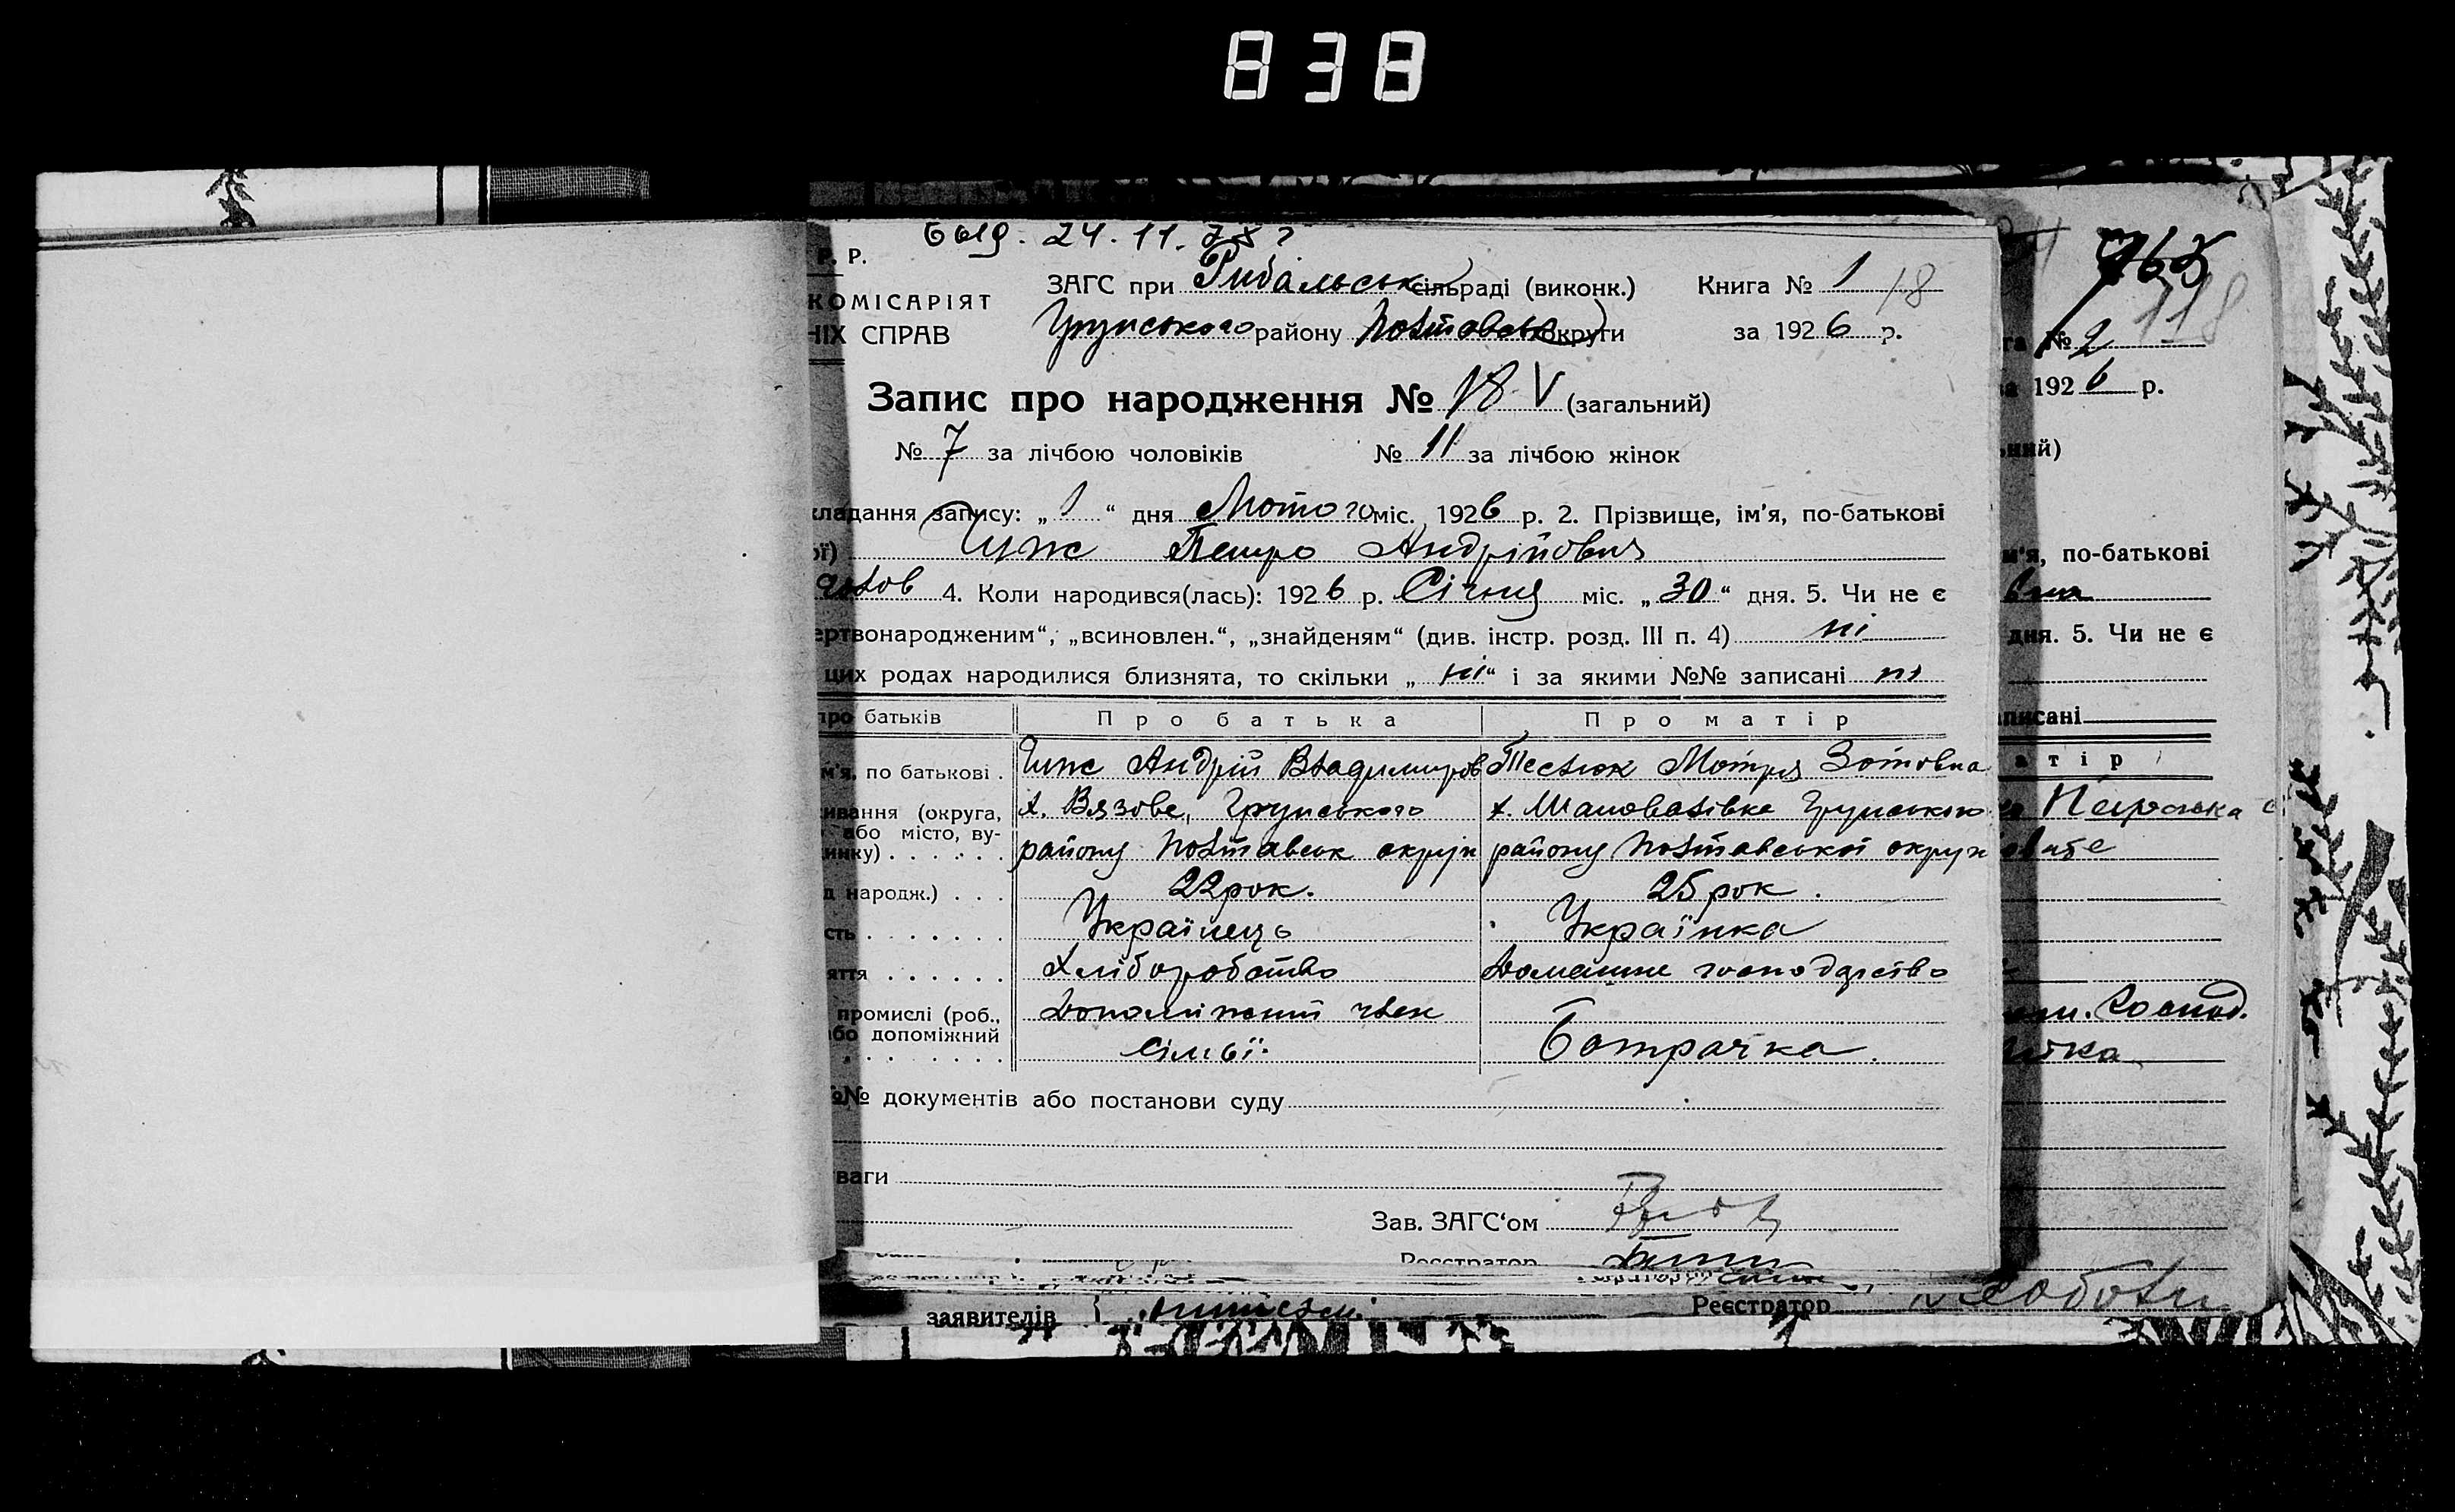 838
24.11.78
Р. Р.
ЗАГС при Рибальськ сільраді (виконк.) Книга № 1 18
КОМІСАРІЯТ
НІХ СПРАВ Грунського району Полтавськ округи за 1926 р.
Запис про народження № 18 V (загальний)
№ 7 за лічбою чоловіків № 11 за лічбою жінок
кладання запису: „1“ дня Лютого міс. 1926 р. 2. Прізвище, ім'я, по-батькові
ої) Чиж Петро Андрійович
4. Коли народився(лась): 1926 р. Січня міс. „30“ дня. 5. Чи не є
ертвонародженим“, „всиновлен.“, „знайденям“ (див. інстр. розд. III п. 4) ні
цих родах народилися близнята, то скільки „ні“ і за якими №№ записані ні
про батьків Про батька Про матір
м'я, по батькові. Чиж Андрій Владимиров Теслюк Мотря Зотовна
ивання (округа, х. Вязове, Грунського х. Шаповалівка Грунського
або місто, ву-
инку) району Полтавськ округи району Полтавської округи
д народж.) 22 рок. 25 рок.
сть Українець Українка
яття Хліборобство Домашне господарство
промислі (роб., Допоміжний член
або допоміжний сімьї. Батрачка.
№№ документів або постанови суду
ваги
Зав. ЗАГС'ом
Реєстратор
заявителів Реєстратор
763
118
га № 2
за 1926 р.
ьний)
м'я, по-батькові
вна
дня. 5. Чи не є
аписані
атір
Петровка
господ.